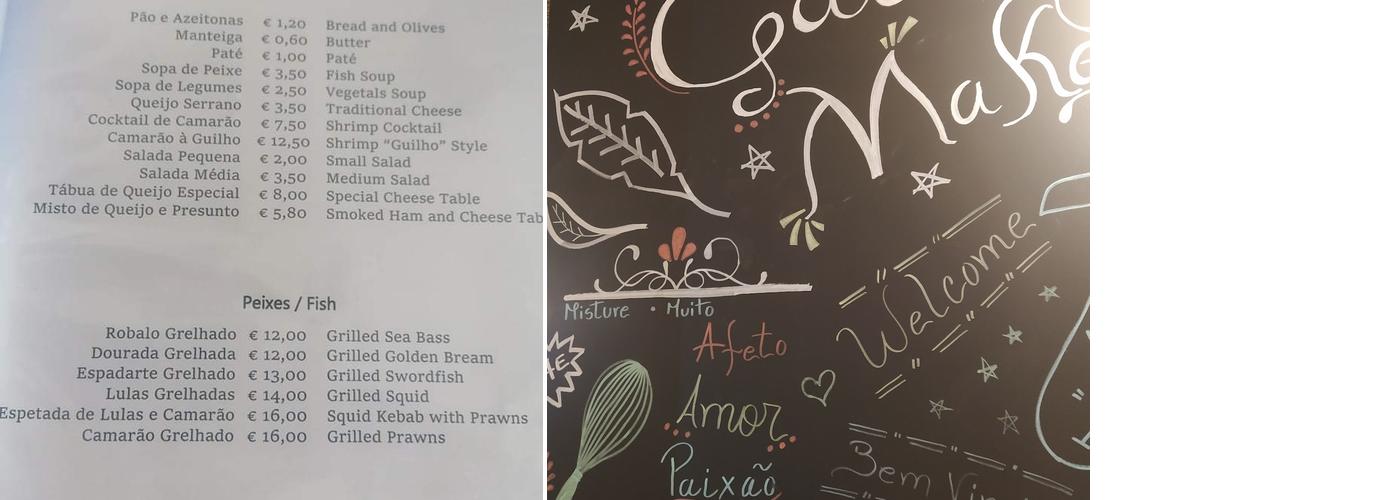 Pão e Azeitonas € 1,20 Bread and Olives
Manteiga € 0,60 Butter
Paté € 1,00 Paté
Sopa de Peixe € 3,50 Fish Soup
Sopa de Legumes € 2,50 Vegetals Soup
Queijo Serrano € 3,50 Traditional Cheese
Cocktail de Camarão € 7,50 Shrimp Cocktail
Camarão à Guilho € 12,50 Shrimp “Guilho” Style
Salada Pequena € 2,00 Small Salad
Salada Média € 3,50 Medium Salad
Tábua de Queijo Especial € 8,00 Special Cheese Table
Misto de Queijo e Presunto € 5,80 Smoked Ham and Cheese Tab
Peixes / Fish
Robalo Grelhado € 12,00 Grilled Sea Bass
Dourada Grelhada € 12,00 Grilled Golden Bream
Espadarte Grelhado € 13,00 Grilled Swordfish
Lulas Grelhadas € 14,00 Grilled Squid
Espetada de Lulas e Camarão € 16,00 Squid Kebab with Prawns
Camarão Grelhado € 16,00 Grilled Prawns
Make
Welcome
Misture • Muito
Afeto
Amor
Paixão
Bem